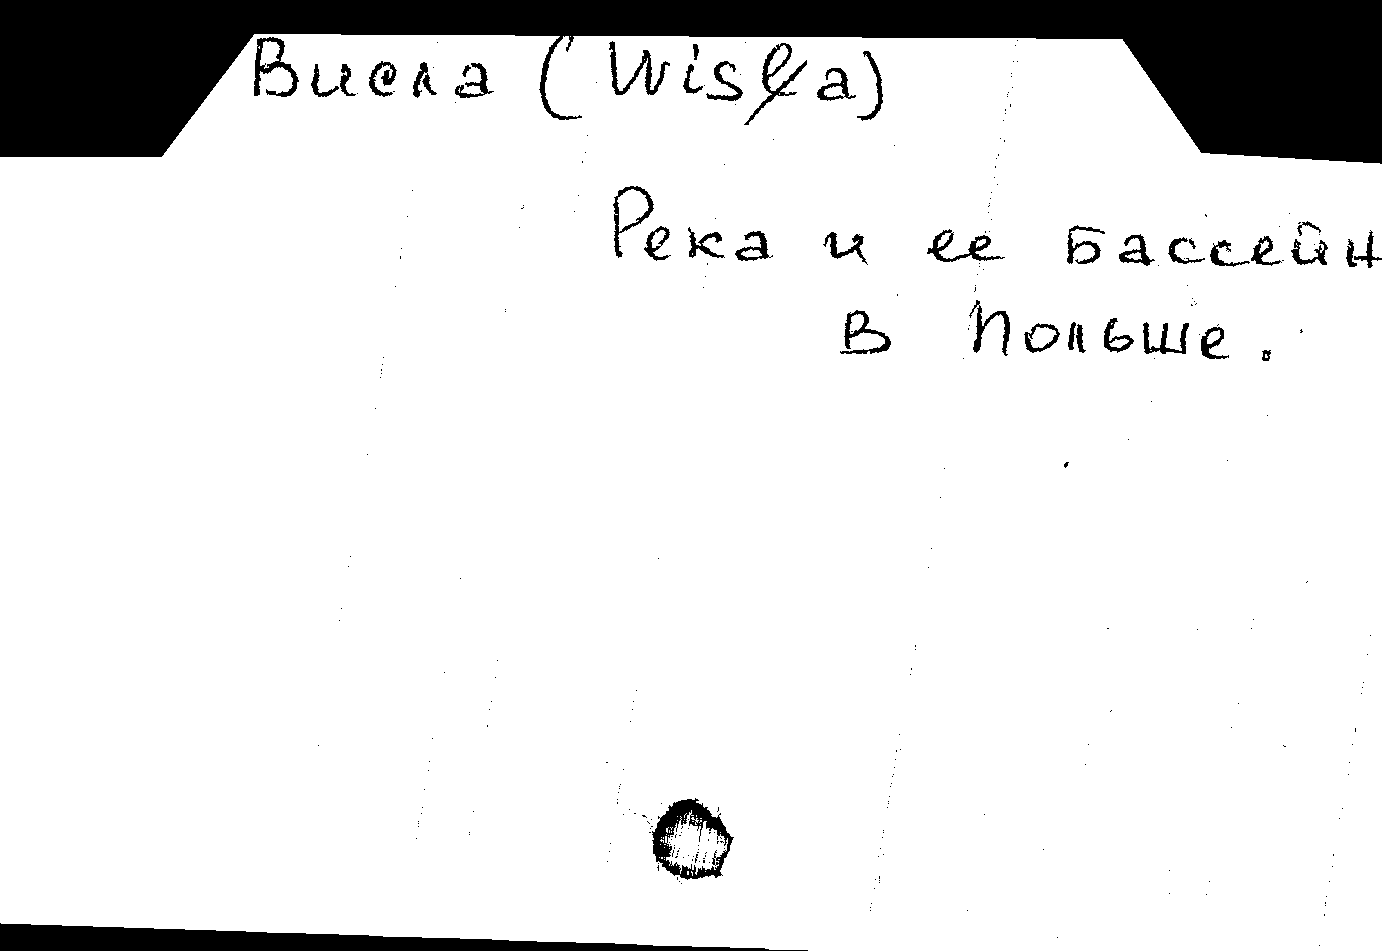 Висла (Wisła)
Река и ее бассейн
в Польше.